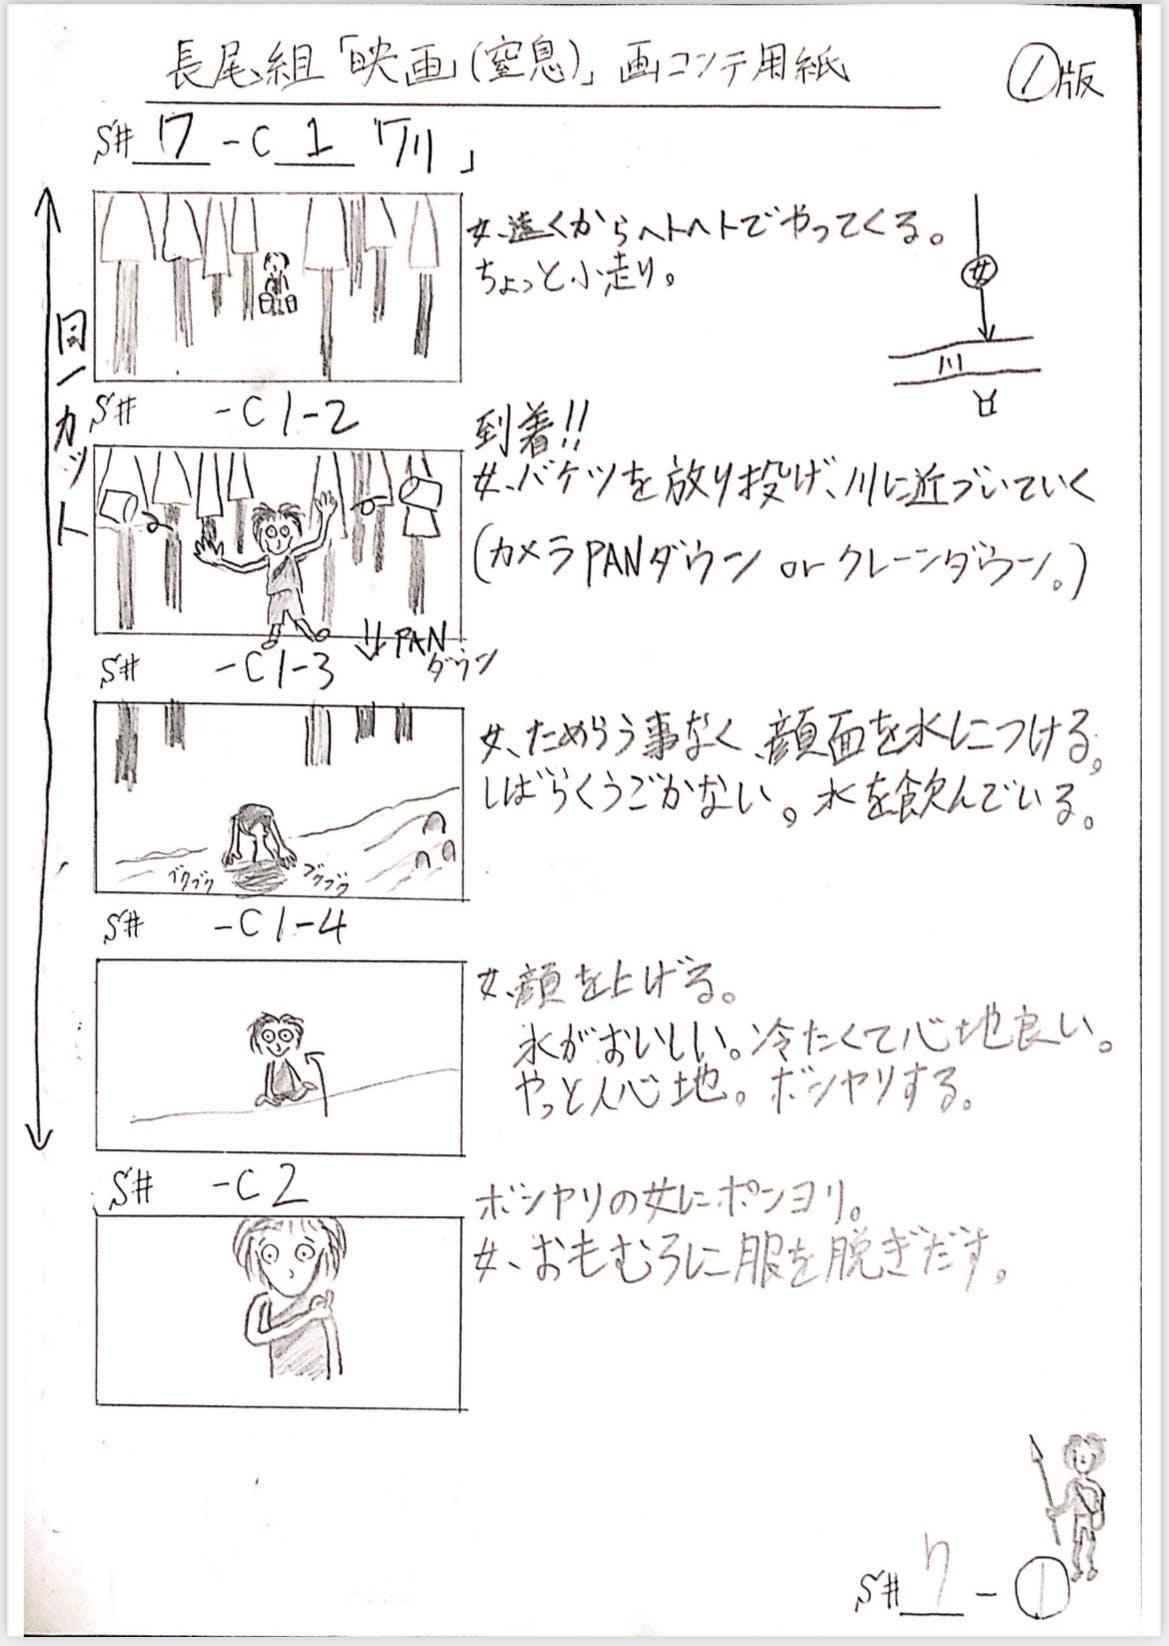 長尾組「映画(窒息)」画コンテ用紙
①版
S# 7 -C 1 「川」
同一カット
女、遠くからヘトヘトでやってくる。
ちょっと小走り。
女
川
S# -C 1-2
到着!!
女、バケツを放り投げ、川に近づいていく
(カメラPANダウン or クレーンダウン。)
PAN
ダウン
S# -C 1-3
女、ためらう事なく、顔面を水につける。
しばらくうごかない。水を飲んでいる。
ブクブク ブクブク
S# -C 1-4
女、顔を上げる。
水がおいしい。冷たくて心地良い。
やっと人心地。ボンヤリする。
S# -C 2
ボンヤリの女にポンヨリ。
女、おもむろに服を脱ぎだす。
S# 7 - ①